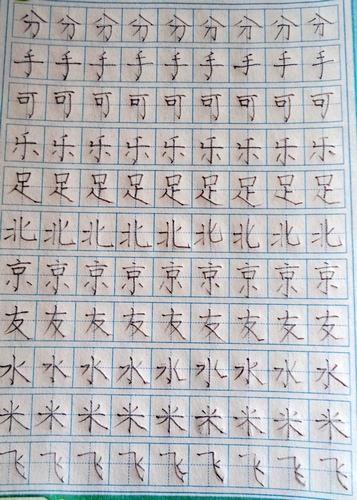 分分分分分分分分分
手手手手手手手手手
可可可可可可可可可
乐乐乐乐乐乐乐乐乐
足足足足足足足足足
北北北北北北北北北
京京京京京京京京京
友友友友友友友友友
水水水水水水水水水
米米米米米米米米米
飞飞飞飞飞飞飞飞飞